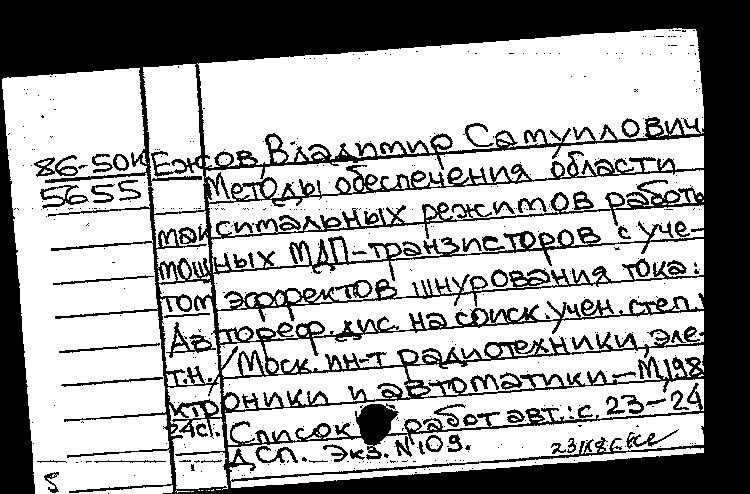 86-50к Ежов, Владимир Самуилович.
5655 Методы обеспечения области
максимальных режимов работы
мощных МДП-транзисторов с уче-
том эффектов шнурования тока:
Автореф. дис. на соиск. учен. степ.
т.н. / Моск. ин-т радиотехники, эле-
ктроники и автоматики. - М, 198
24с. Список работ авт.: с. 23-24
ДСП. Экз. №109.